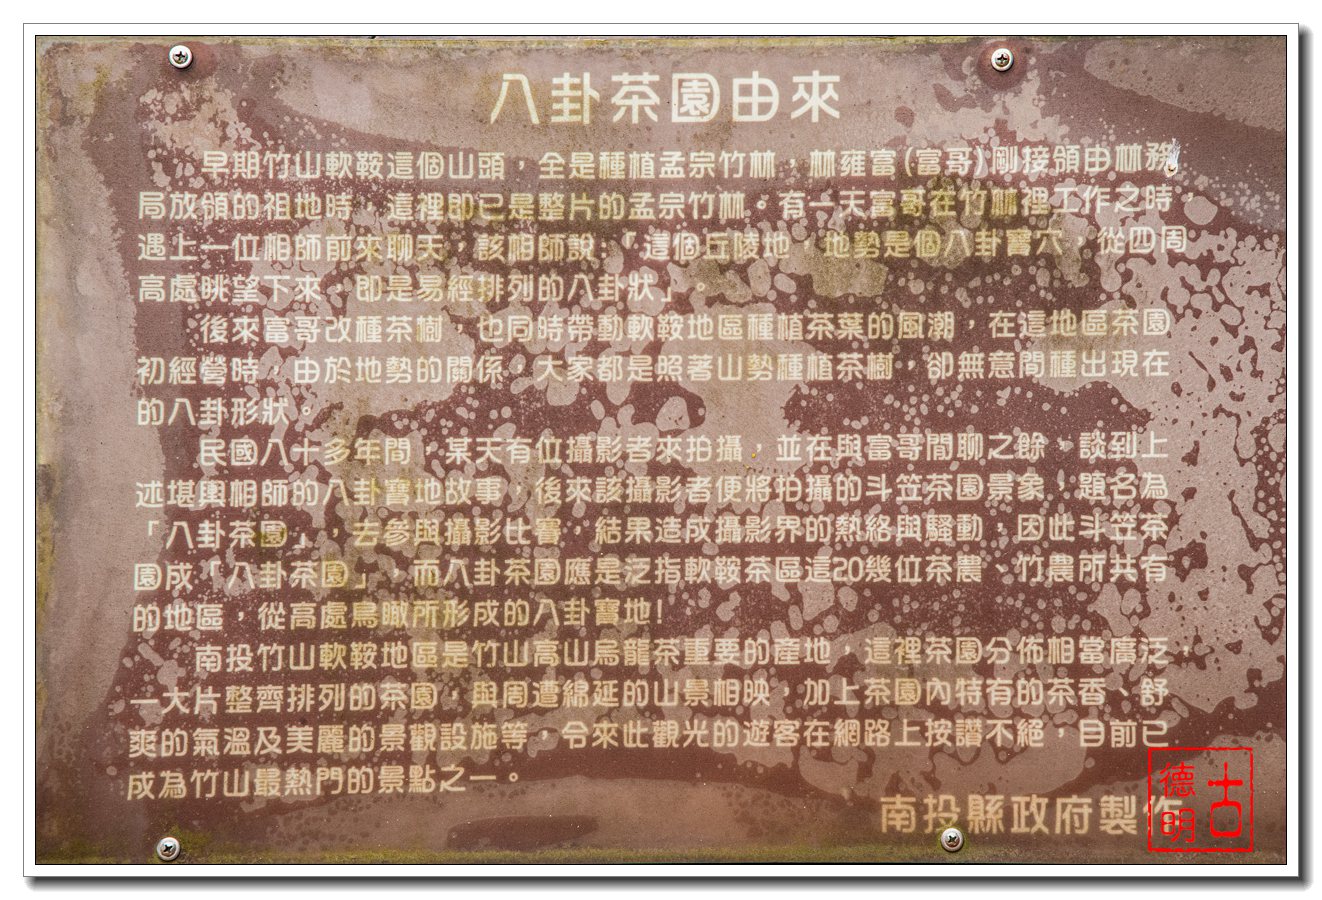 八卦茶園由來
早期竹山軟鞍這個山頭，全是種植孟宗竹林，林雍富(富哥)剛接領由林務
局放領的祖地時，這裡即已是整片的孟宗竹林。有一天富哥在竹林裡工作之時，
遇上一位相師前來聊天，該相師說：「這個丘陵地，地勢是個八卦寶穴，從四周
高處眺望下來，即是易經排列的八卦狀」。
後來富哥改種茶樹，也同時帶動軟鞍地區種植茶葉的風潮，在這地區茶園
初經營時，由於地勢的關係，大家都是照著山勢種植茶樹，卻無意間種出現在
的八卦形狀。
民國八十多年間，某天有位攝影者來拍攝，並在與富哥閒聊之餘，談到上
述堪輿相師的八卦寶地故事，後來該攝影者便將拍攝的斗笠茶園景象，題名為
「八卦茶園」，去參與攝影比賽，結果造成攝影界的熱絡與騷動，因此斗笠茶
園成「八卦茶園」，而八卦茶園應是泛指軟鞍茶區這20幾位茶農、竹農所共有
的地區，從高處鳥瞰所形成的八卦寶地!
南投竹山軟鞍地區是竹山高山烏龍茶重要的產地，這裡茶園分佈相當廣泛，
一大片整齊排列的茶園，與周遭綿延的山景相映，加上茶園內特有的茶香、舒
爽的氣溫及美麗的景觀設施等，令來此觀光的遊客在網路上按讚不絕，目前已
成為竹山最熱門的景點之一。
南投縣政府製作
古德明